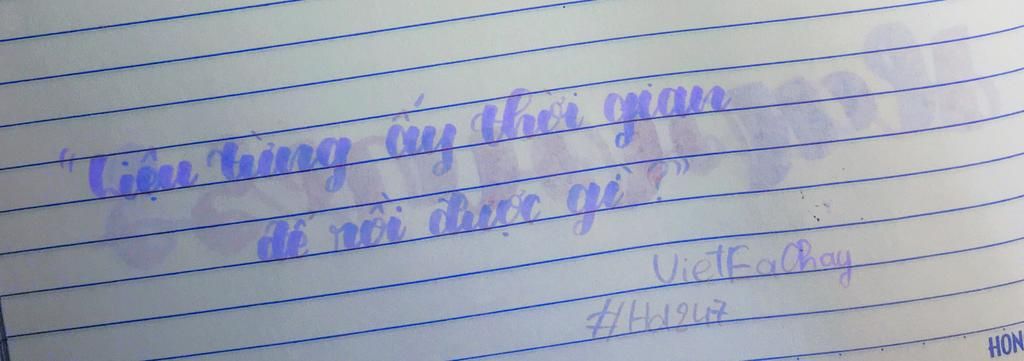 “Liệu từng ấy thời gian
để rồi được gì?”
VietFaChay
#Hd247
HON